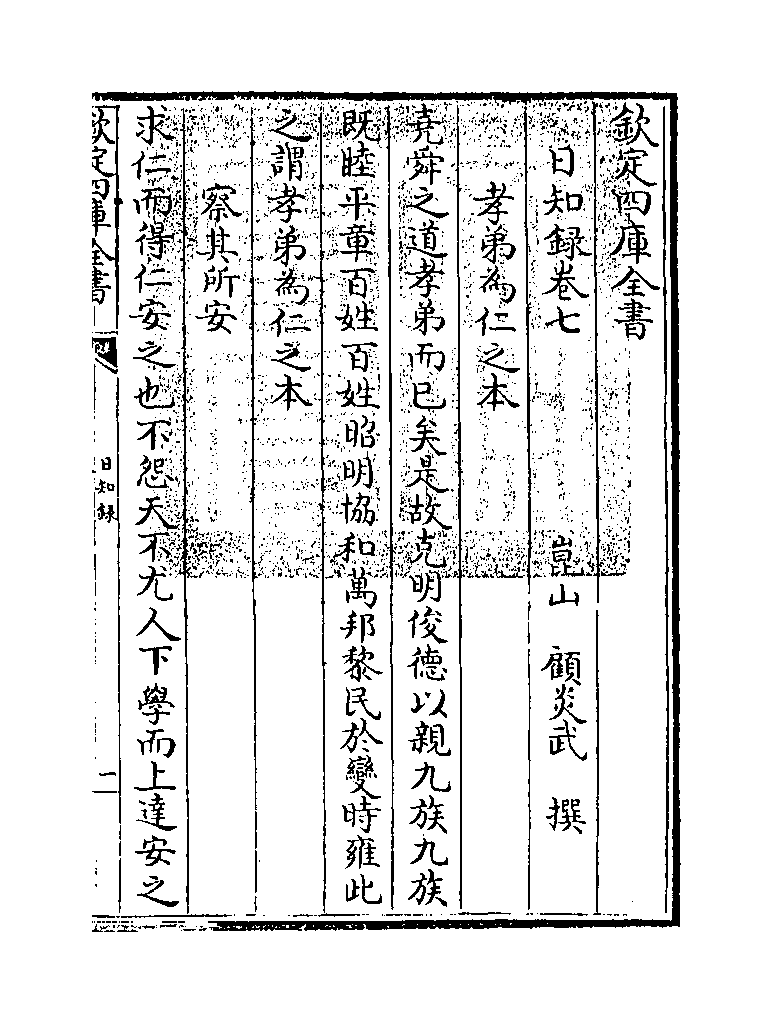 欽定四庫全書
日知録卷七
崑山　顧炎武　撰
孝弟為仁之本
堯舜之道孝弟而已矣是故克明俊德以親九族九族
既睦平章百姓百姓昭明協和萬邦黎民於變時雍此
之謂孝弟為仁之本
察其所安
求仁而得仁安之也不怨天不尤人下學而上達安之
欽定四庫全書
日知録